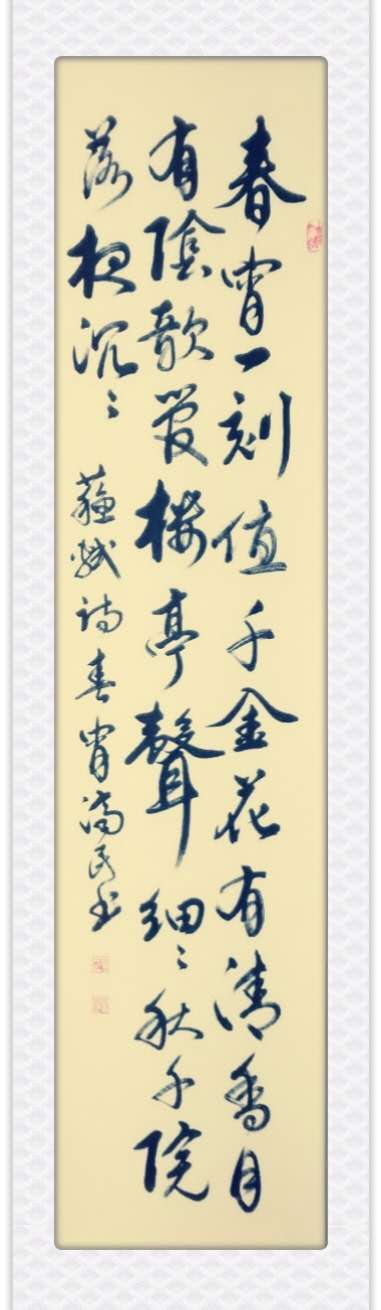 春宵一刻值千金花有清香月
有陰歌管樓亭聲細〻秋千院
落夜沉〻 蘇軾詩春宵 民书